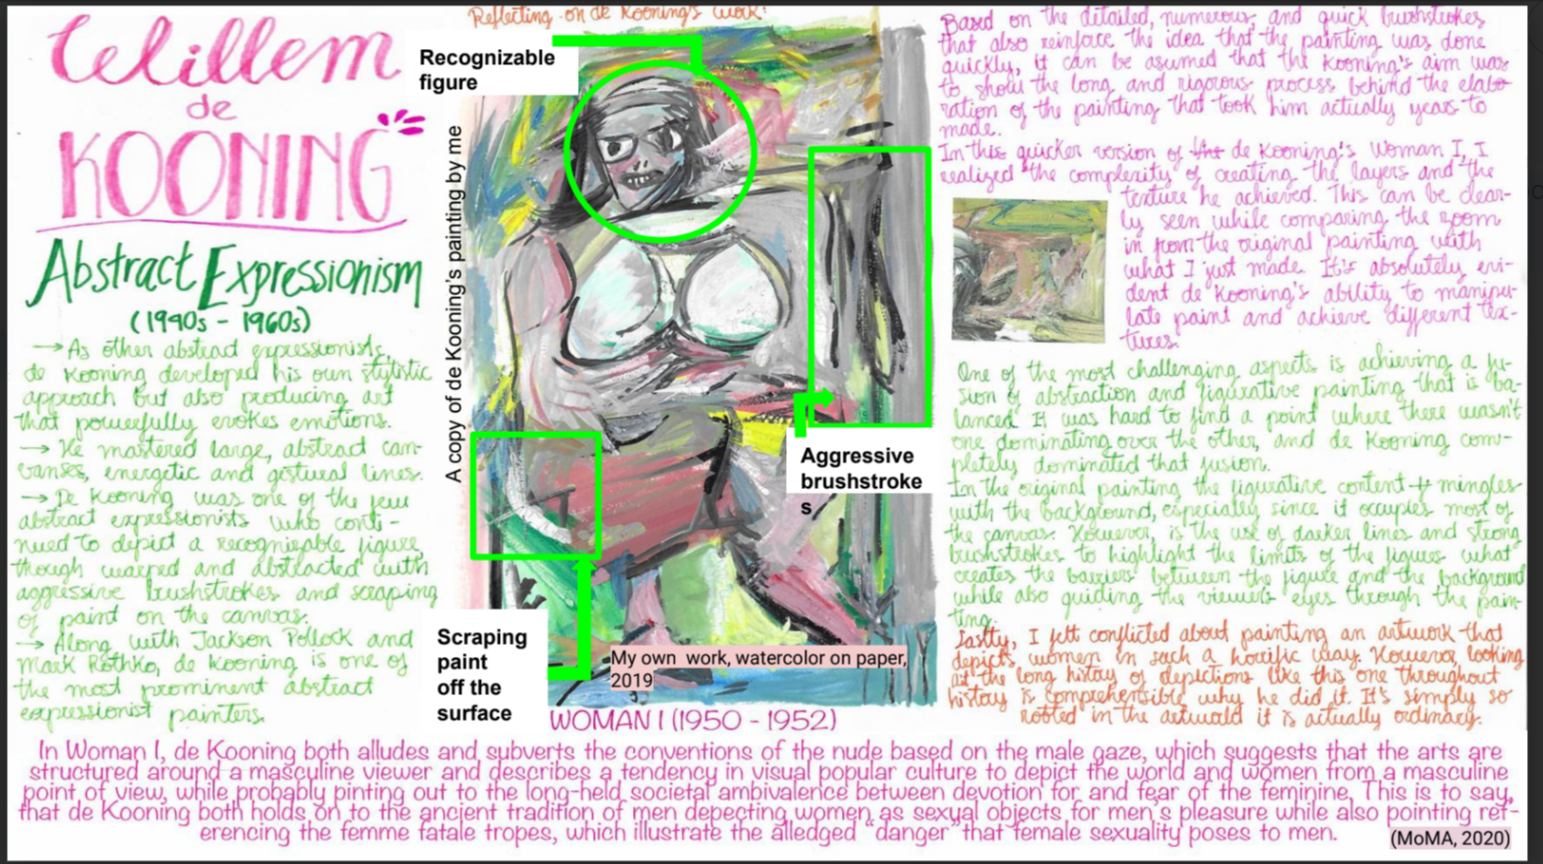 Willem
de
KOONING
Abstract Expressionism
(1940s - 1960s)
→ As other abstract expressionists,
de Kooning developed his own stylistic
approach but also producing art
that powerfully evokes emotions.
→ He mastered large, abstract can-
vanses, energetic and gestural lines.
→ De Kooning was one of the few
abstract expressionists who conti-
nued to depict a recogniepable figure,
though warped and abstracted with
aggressive brushstrokes and scraping
of paint on the canvas.
→ Along with Jackson Pollock and
Mark Rothko, de Kooning is one of
the most prominent abstract
expressionist painters.
Reflecting on de Kooning's work:
Recognizable
figure
A copy of de Kooning's painting by me
Aggressive
brushstroke
s
Scraping
paint
off the
surface
My own work, watercolor on paper,
2019
WOMAN I (1950 - 1952)
Based on the detailed, numerous, and quick brushstrokes
that also reinforce the idea that the painting was done
quickly, it can be asumed that the Kooning's aim was
to show the long and rigorous process behind the elabo-
ration of the painting that took him actually years to
made.
In this quicker version of de Kooning's Woman I, I
realized the complexity of creating the layers and the
texture he achieved. This can be clear-
ly seen while comparing the zoom
in from the original painting with
what I just made. It's absolutely evi-
dent de Kooning's ability to manipu-
late paint and achieve different tex-
tures.
One of the most challenging aspects is achieving a fu-
sion of abstraction and figurative painting that is ba-
lanced. It was hard to find a point where there wasn't
one dominating over the other, and de Kooning com-
pletely dominated that fusion.
In the original painting the figurative content mingles
with the background, especially since it occupies most of
the canvas. However, is the use of darker lines and strong
brushstrokes to highlight the limits of the figures what
creates the barriers between the figure and the background
while also guiding the viewer's eyes through the pain-
ting.
Lastly, I felt conflicted about painting an artwork that
depicts women in such a horrific way. However, looking
at the long history of depictions like this one throughout
history is comprehensible why he did it. It's simply so
rooted in the artworld it is actually ordinary.
In Woman I, de Kooning both alludes and subverts the conventions of the nude based on the male gaze, which suggests that the arts are
structured around a masculine viewer and describes a tendency in visual popular culture to depict the world and women from a masculine
point of view, while probably pinting out to the long-held societal ambivalence between devotion for and fear of the feminine. This is to say,
that de Kooning both holds on to the ancient tradition of men depecting women as sexual objects for men's pleasure while also pointing ref-
erencing the femme fatale tropes, which illustrate the alledged "danger" that female sexuality poses to men.
(MoMA, 2020)